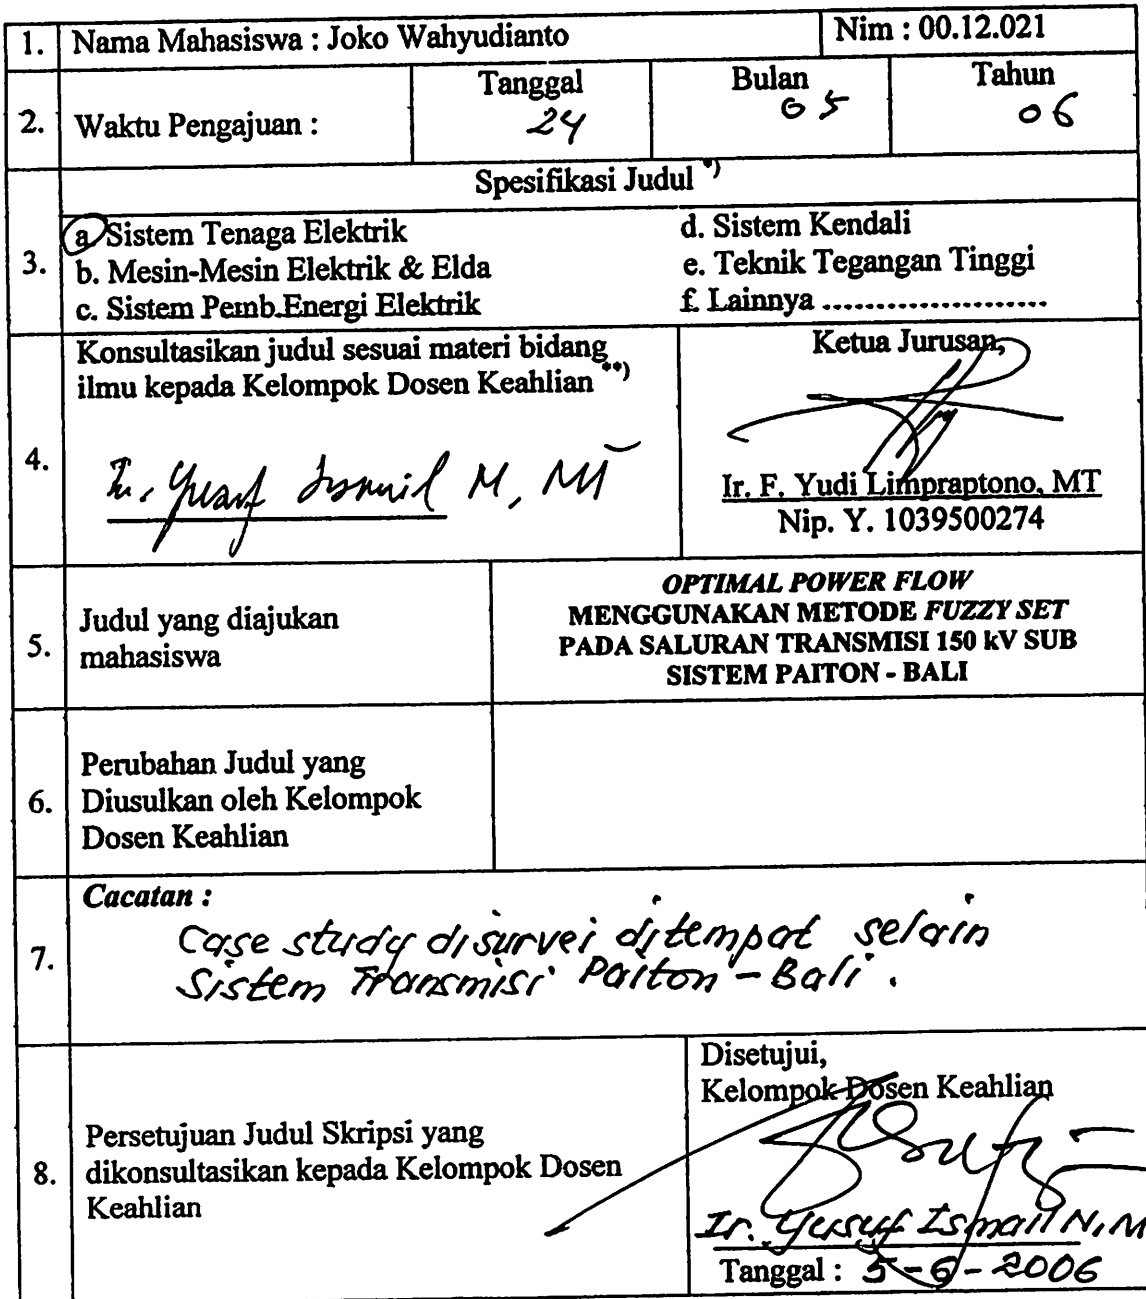 1. Nama Mahasiswa : Joko Wahyudianto Nim : 00.12.021
2. Waktu Pengajuan : Tanggal 24 Bulan 05 Tahun 06
3. Spesifikasi Judul *)
a Sistem Tenaga Elektrik
b. Mesin-Mesin Elektrik & Elda
c. Sistem Pemb.Energi Elektrik
d. Sistem Kendali
e. Teknik Tegangan Tinggi
f. Lainnya .....................
4. Konsultasikan judul sesuai materi bidang
ilmu kepada Kelompok Dosen Keahlian **)
Ir. Yusuf Ismail N, MT
Ketua Jurusan,
Ir. F. Yudi Limpraptono, MT
Nip. Y. 1039500274
5. Judul yang diajukan
mahasiswa
OPTIMAL POWER FLOW
MENGGUNAKAN METODE FUZZY SET
PADA SALURAN TRANSMISI 150 kV SUB
SISTEM PAITON - BALI
6. Perubahan Judul yang
Diusulkan oleh Kelompok
Dosen Keahlian
7. Cacatan :
Case study disurvei ditempat selain
Sistem Transmisi Paiton - Bali .
8. Persetujuan Judul Skripsi yang
dikonsultasikan kepada Kelompok Dosen
Keahlian
Disetujui,
Kelompok Dosen Keahlian
Ir. Yusuf Ismail N, M
Tanggal : 5 - 6 - 2006